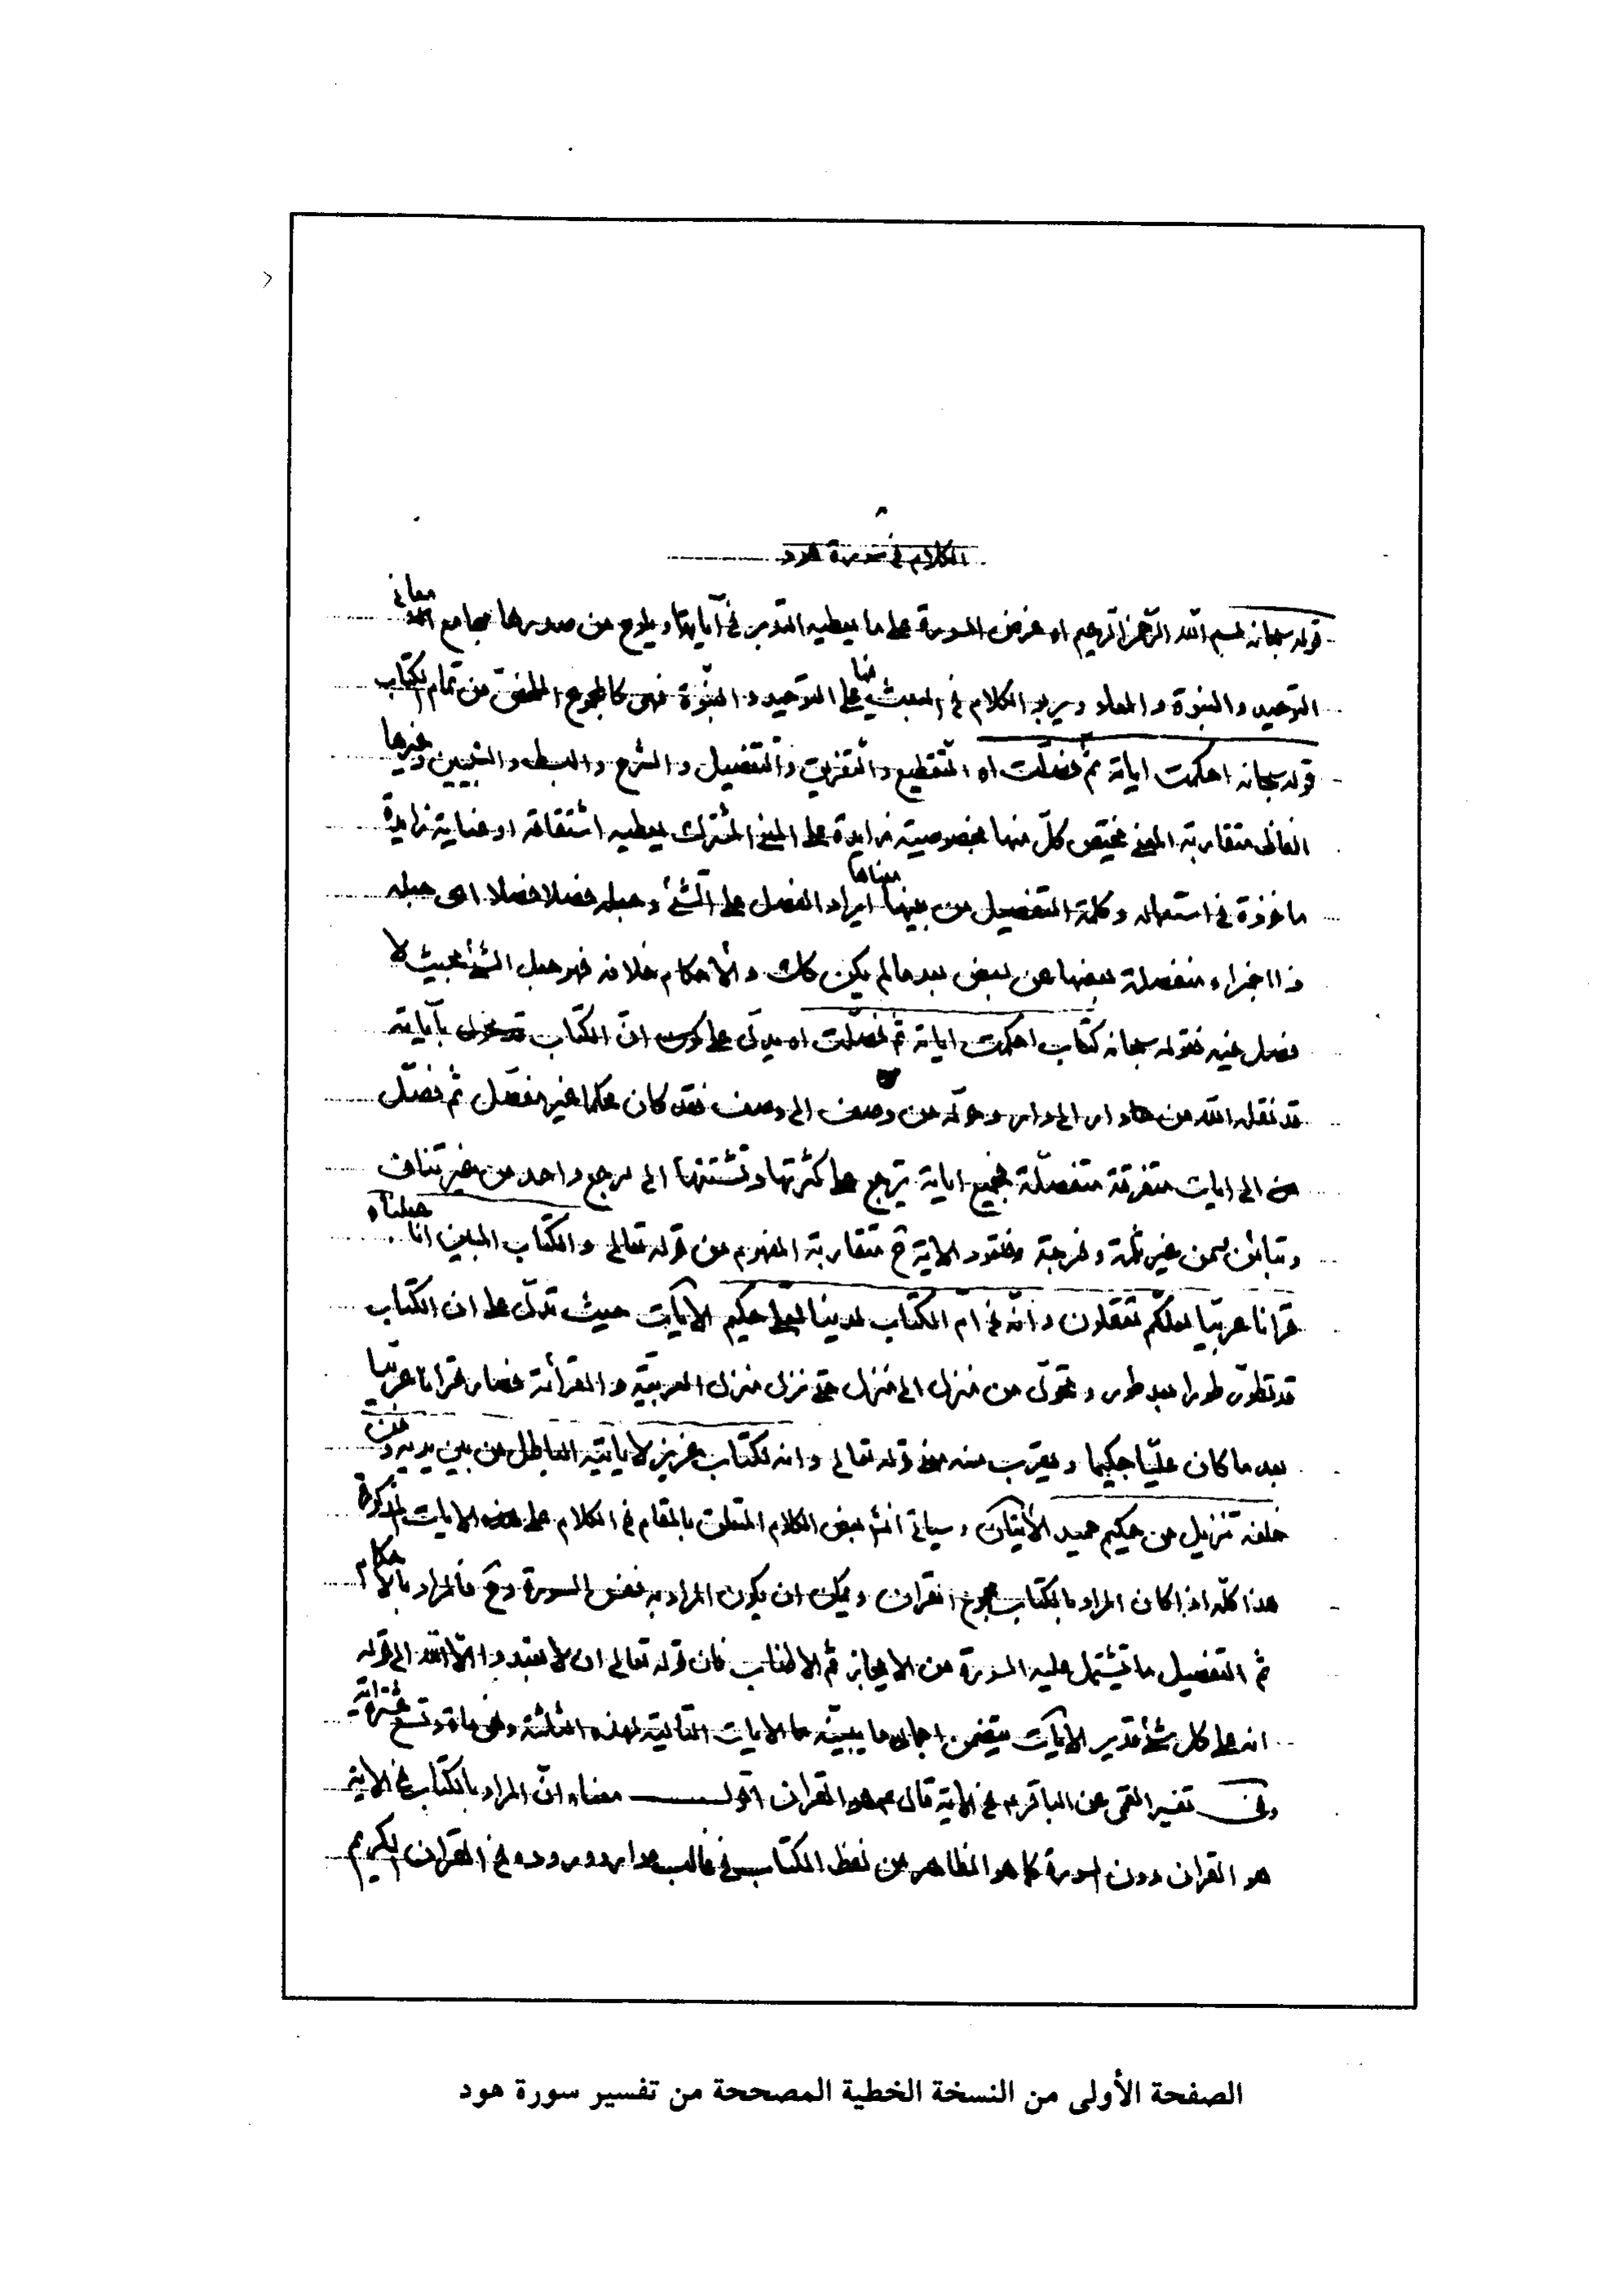 الكلام في سورة هود
قوله سبحانه بسم الله الرحمن الرحيم اه غرض السورة على ما يعطيه التدبر في آياتها ويلوح من صدورها مجامع معاني
التوحيد والنبوة والمعاد ويربو الكلام في البعث فيها على التوحيد والنبوّة فهى كالمجموع الملخص من تمام الكتاب
قوله سبحانه احكمت اياته ثم فصّلت اه التقطيع والتفريق والتفصيل والشرح والبسط والتبيين وغيرها
الفاظ متقاربة المعنى يختص كلّ منها بخصوصية زايدة على المعنى المشترك يعطيه اشتقاقه او عناية زايدة
ماخوذة في استعماله وكلمة التفصيل من بينها معناها ايراد الفصل على الشئ وجعله فصلا فصلا اى جعله
ذا اجزاء منفصلة بعضها عن بعض بعد ما لم يكن كك والأحكام خلافه فهو جعل الشئ بحيث لا
فصل فيه فقوله سبحانه كتاب احكمت اياته ثم فصّلت اه يدلّ على انّ الكتاب بآياته
قد نقله الله من دار الى دار وحوّله من وصف الى وصف فقد كان محكما غير مفصّل ثم فصّل
الى ايات متفرقة متفصّلة فجميع اياته يرجع على كثرتها وتشتتها الى مرجع واحد من غير تناف
وتباين من غير ثلمة وفرجة الاية ح متقاربة المفهوم من قوله تعالى والكتاب المبين انا جعلناه
قرانا عربيّا لعلكم تعقلون وانّه في امّ الكتاب لدينا لعلى حكيم الآيات حيث تدلّ على ان الكتاب
قد تطوّر طورا بعد طور وتحوّل من منزل الى منزل حتى نزل منزل العربيّة والقرأنة فصار قرانا عربيّا
بعد ما كان عليّا حكيما ويقرب منه قوله تعالى وانه لكتاب عزيز لا ياتيه الباطل من بين يديه ومن
خلفه تنزيل من حكيم حميد الأيتان وسياتى انش بعض الكلام المتعلق بالمقام في الكلام على هذه الايات المذكورة
هذا كلّه اذا كان المراد بالكتاب مجموع القران ويمكن ان يكون المراد به نفس السورة وح فالمراد بالاحكام
ثم التفصيل ما يشتمل عليه السورة من الايجاز ثم الاطناب فان قوله تعالى ان لا تعبدوا الّا الله الى قوله
انه على كل شئ قدير الآيات يتضمن اجمال ما يبيّنه الايات التالية لهذه الثلثة وهى ماة وتسع عشرة اية
وفى تفسير القمى عن الباقر ع في الاية قال ع هو القران اقول معناه انّ المراد بالكتاب في الاية
هو القران دون السورة كما هو الظاهر من لفظ الكتاب في غالب موارد وروده في القران الكريم
الصفحة الأولى من النسخة الخطية المصححة من تفسير سورة هود